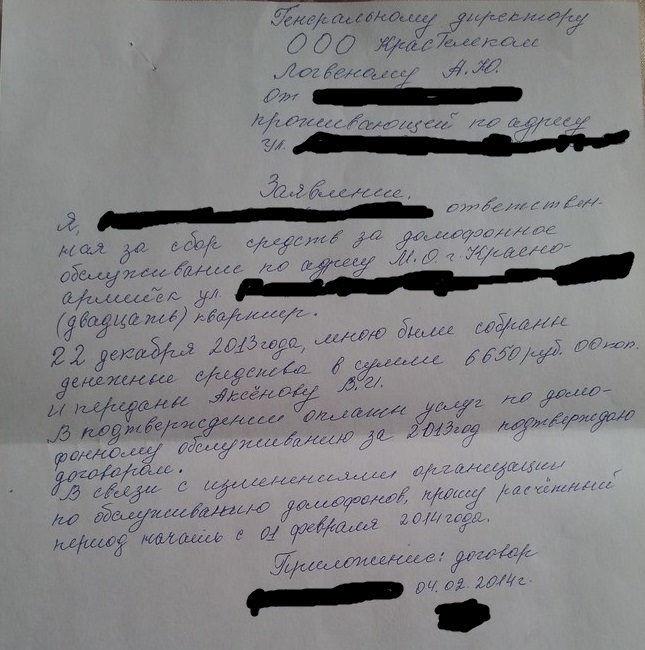 Генеральному директору
ООО КрасТелеком
Логвеному А.Ю.
от
проживающей по адресу
ул.
Заявление.
Я, ответствен-
ная за сбор средств за домофонное
обслуживание по адресу М.О. г. Красно-
армийск ул.
(двадцать) квартир.
22 декабря 2013 года, мною были собраны
денежные средства в сумме 6650 руб. 00 коп.
и переданы Аксёнову В.И.
В подтверждении оплаты услуг по домо-
фонному обслуживанию за 2013 год подтверждаю
договором.
В связи с изменениями организации
по обслуживанию домофонов, прошу расчётный
период начать с 01 февраля 2014 года.
Приложение: договор
04.02.2014 г.